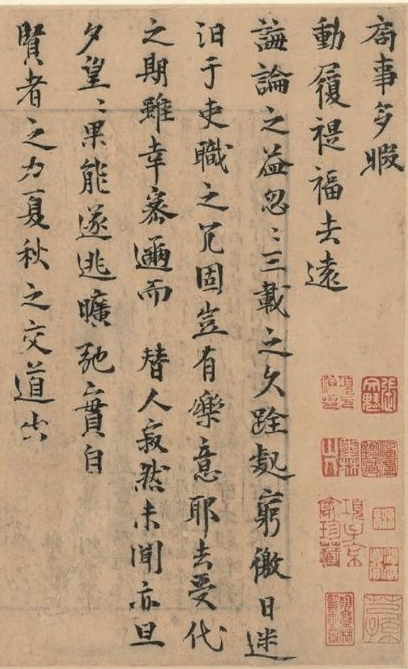 局事多暇
動履禔福去遠
誨論之益忽〻三載之久跧處窮徼日迷
汨于吏職之冗固豈有樂意耶去受代
之期雖幸密邇而替人寂然未聞亦旦
夕望〻果能遂逃曠弛實自
賢者之力夏秋之交道出
項子京
家珍藏